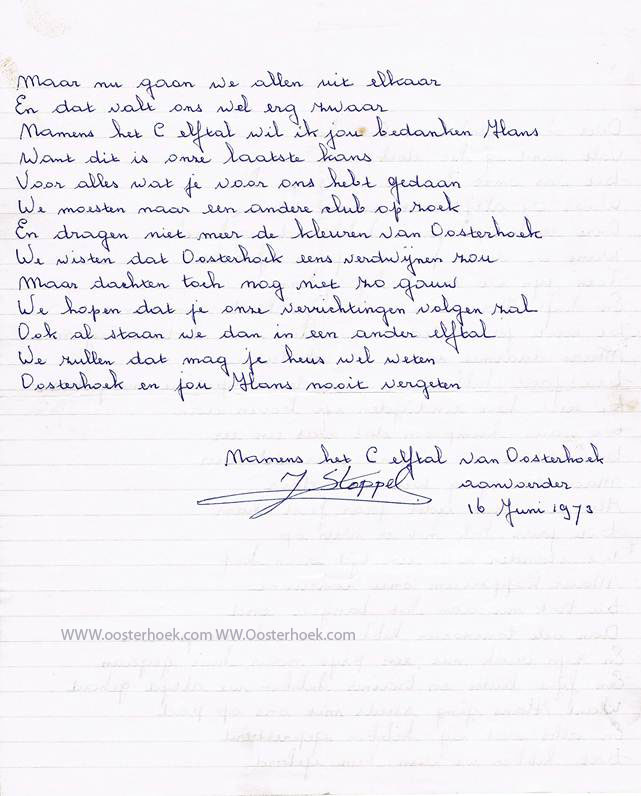 Maar nu gaan we allen uit elkaar
En dat valt ons wel erg zwaar
Namens het C elftal wil ik jou bedanken Hans
Want dit is onze laatste kans
Voor alles wat je voor ons hebt gedaan
We moesten naar een andere club op zoek
En dragen niet meer de kleuren van Oosterhoek
We wisten dat Oosterhoek eens verdwijnen zou
Maar dachten toch nog niet zo gauw
We hopen dat je onze verrichtingen volgen zal
Ook al staan we dan in een ander elftal
We zullen dat mag je heus wel weten
Oosterhoek en jou Hans nooit vergeten
Namens het C elftal van Oosterhoek
J Stoppel aanvoerder
16 Juni 1973
WWW.oosterhoek.com WW.Oosterhoek.com